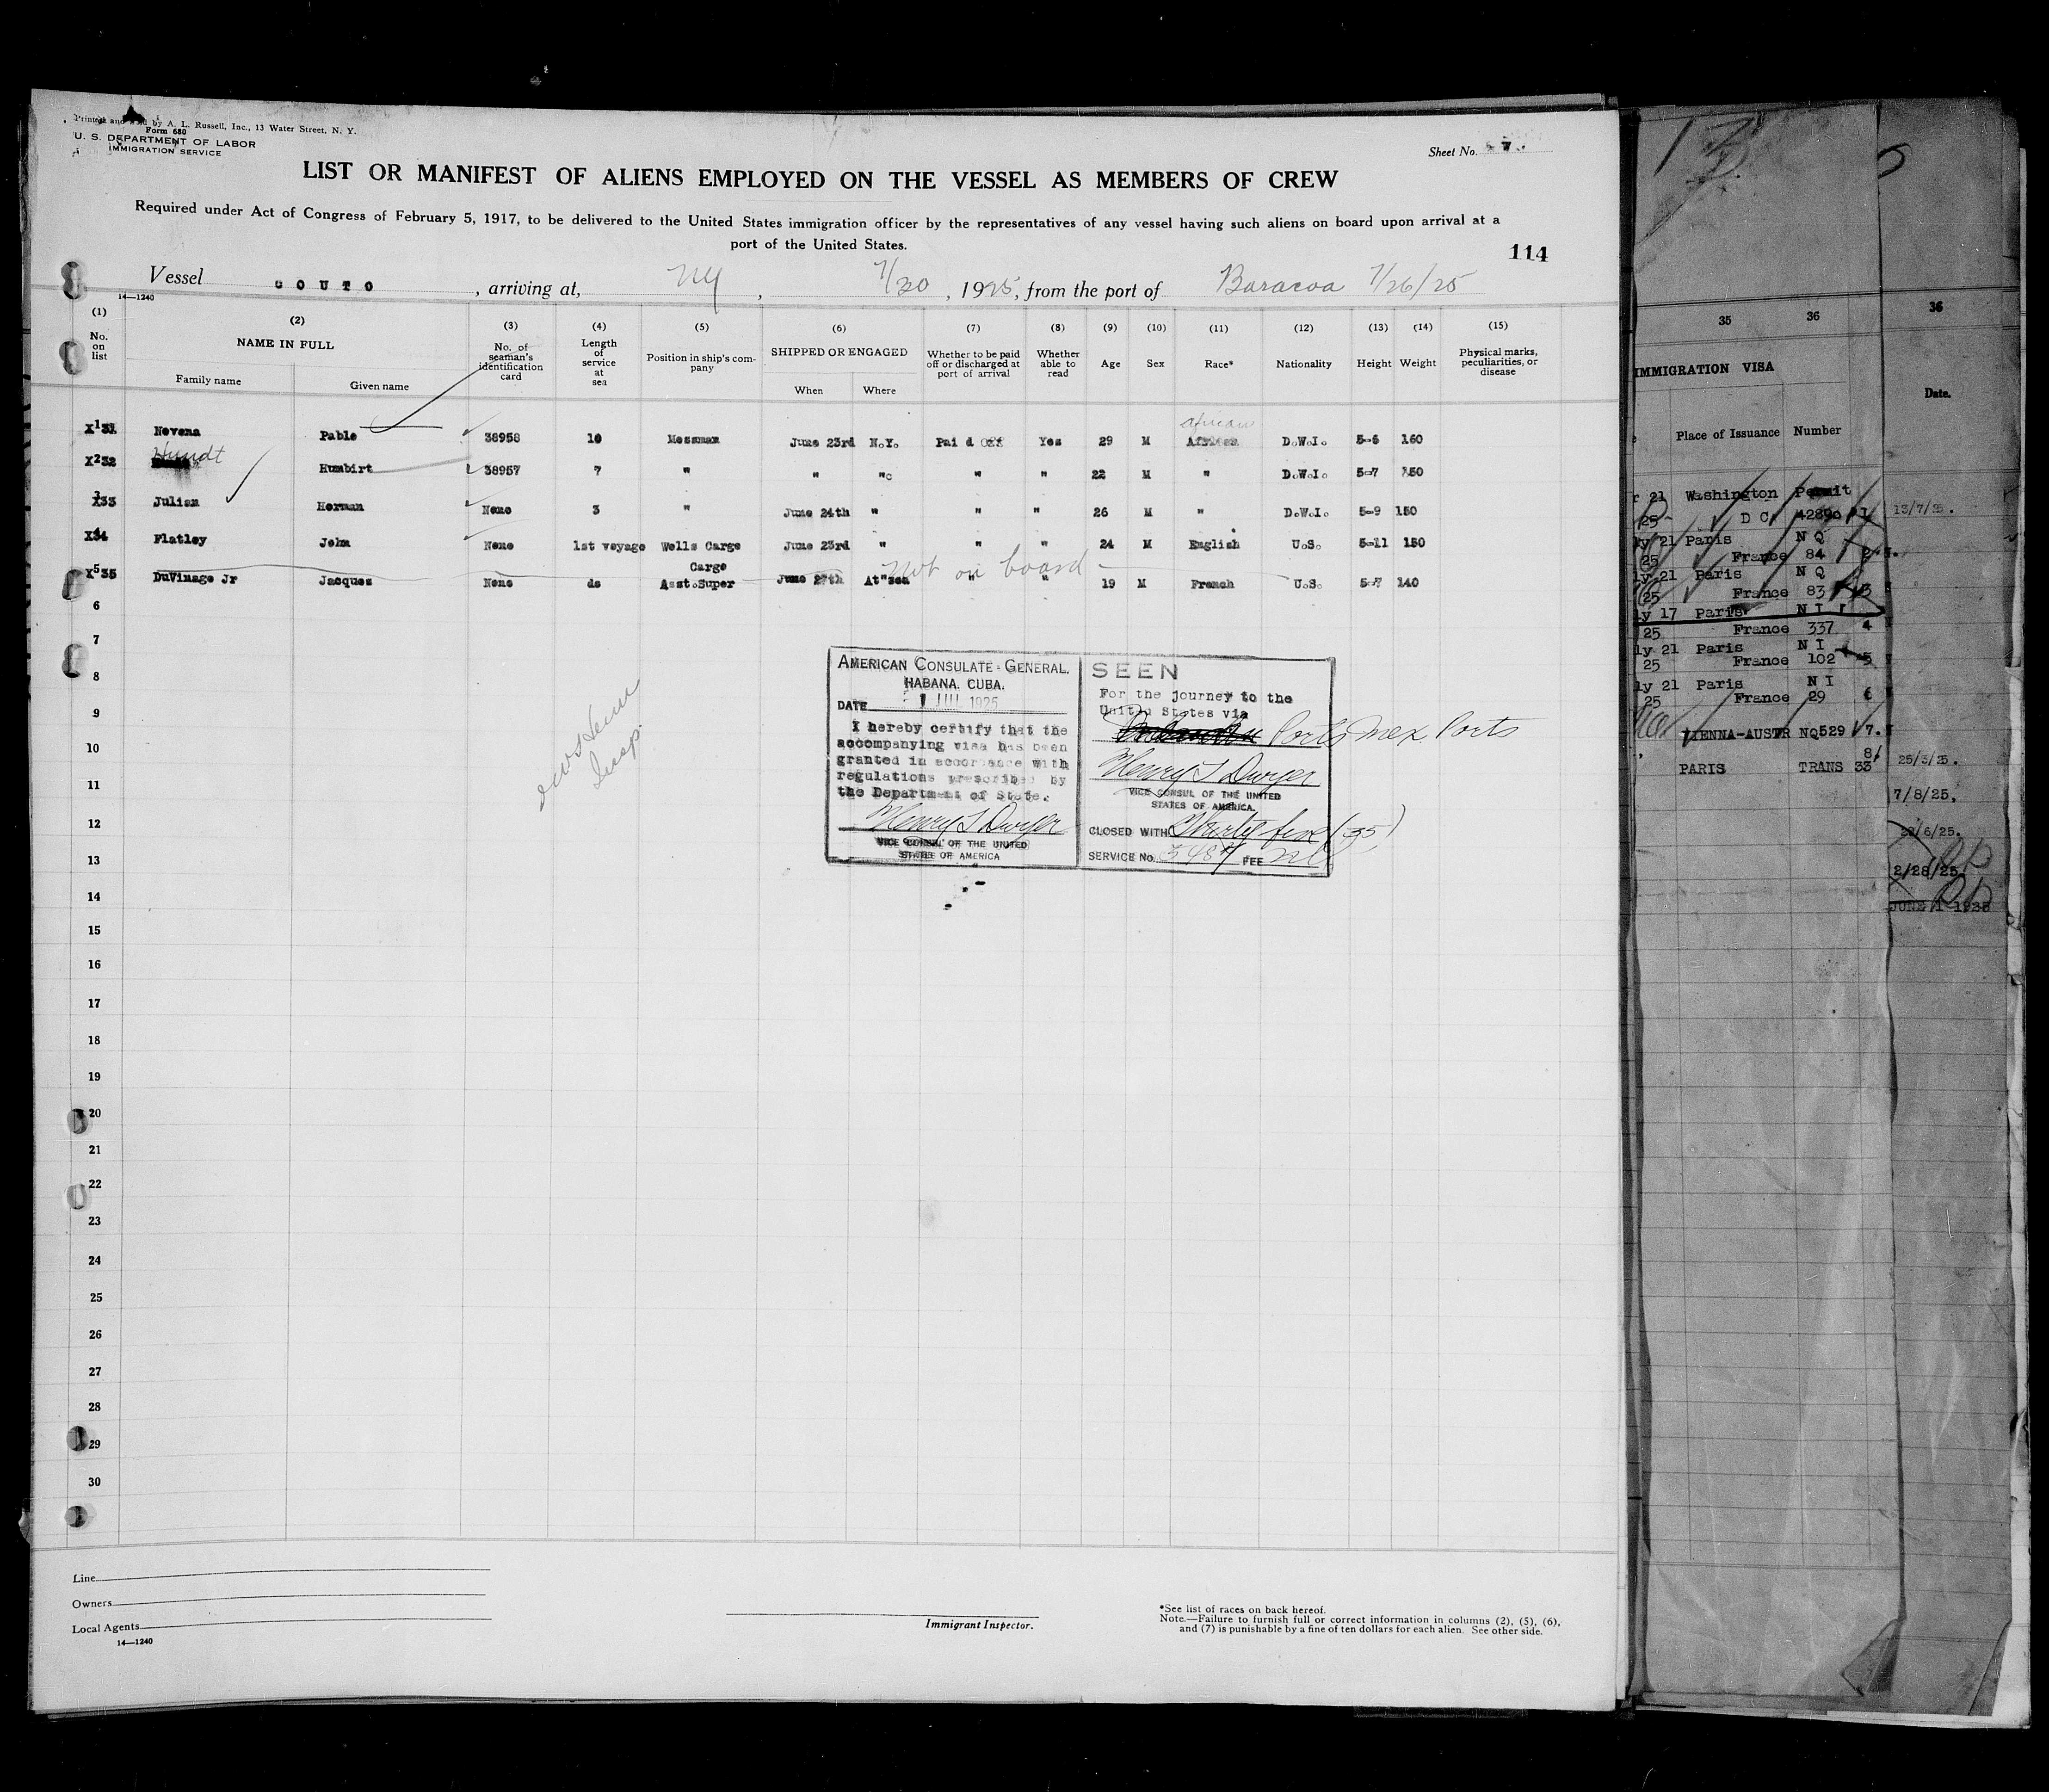 Printed and Sold by A. L. Russell, Inc., 13 Water Street, N. Y.
Form 680
U. S. DEPARTMENT OF LABOR
IMMIGRATION SERVICE
Sheet No.
LIST OR MANIFEST OF ALIENS EMPLOYED ON THE VESSEL AS MEMBERS OF CREW
Required under Act of Congress of February 5, 1917, to be delivered to the United States immigration officer by the representatives of any vessel having such aliens on board upon arrival at a
port of the United States.
114
Vessel OUTO, arriving at, NY, 7/30, 1925, from the port of Baracoa 7/26/25
14—1240
(1) (2) (3) (4) (5) (6) (7) (8) (9) (10) (11) (12) (13) (14) (15)
No. on list
NAME IN FULL
Family name Given name
No. of seaman's identification card
Length of service at sea
Position in ship's company
SHIPPED OR ENGAGED
When Where
Whether to be paid off or discharged at port of arrival
Whether able to read
Age Sex Race* Nationality Height Weight
Physical marks, peculiarities, or disease
african
X 1 31 Nevena Pable 38958 10 Messman June 23rd N.Y. Paid Off Yes 29 M African D.W.I. 5-6 160
Hundt
X 2 32 Humbirt 38957 7 " " " " " 22 M " D.W.I. 5-7 150
X 3 33 Julien Herman None 3 " June 24th " " " 26 M " D.W.I. 5-9 150
X 4 34 Flatley John None 1st voyage Wells Cargo June 23rd " " " 24 M English U.S. 5-11 150
not on board
X 5 35 DuVinage Jr Jacques None do Cargo Asst.Super June 27th At sea " " 19 M French U.S. 5-7 140
6
7
8
9
10
11
12
13
14
15
16
17
18
19
20
21
22
23
24
25
26
27
28
29
30
Insp.
AMERICAN CONSULATE-GENERAL.
HABANA. CUBA.
DATE 1 JUL 1925
I hereby certify that the
accompanying visa has been
granted in accordance with
regulations prescribed by
the Department of State.
Henry T Dwyer
VICE CONSUL OF THE UNITED
STATES OF AMERICA
SEEN
For the journey to the
United States via
Ports Mex. Ports
Henry T Dwyer
VICE CONSUL OF THE UNITED
STATES OF AMERICA.
CLOSED WITH Thirty five (35)
SERVICE No. 3487 FEE
Line
Owners
Local Agents
14—1240
Immigrant Inspector.
*See list of races on back hereof.
Note.—Failure to furnish full or correct information in columns (2), (5), (6),
and (7) is punishable by a fine of ten dollars for each alien. See other side.
35 36
IMMIGRATION VISA
Place of Issuance Number
21 Washington Permit
25 D C. 42890 1
21 Paris N Q
25 France 84 2
21 Paris N Q
25 France 83 3
17 Paris N I
25 France 337 4
21 Paris N I
25 France 102 5
21 Paris N I
25 France 29 6
VIENNA-AUSTR NQ529 7.
8
PARIS TRANS 33
36
Date.
13/7/25.
25/3/25.
7/8/25.
/6/25.
2/28/25.
JUNE 1 1925